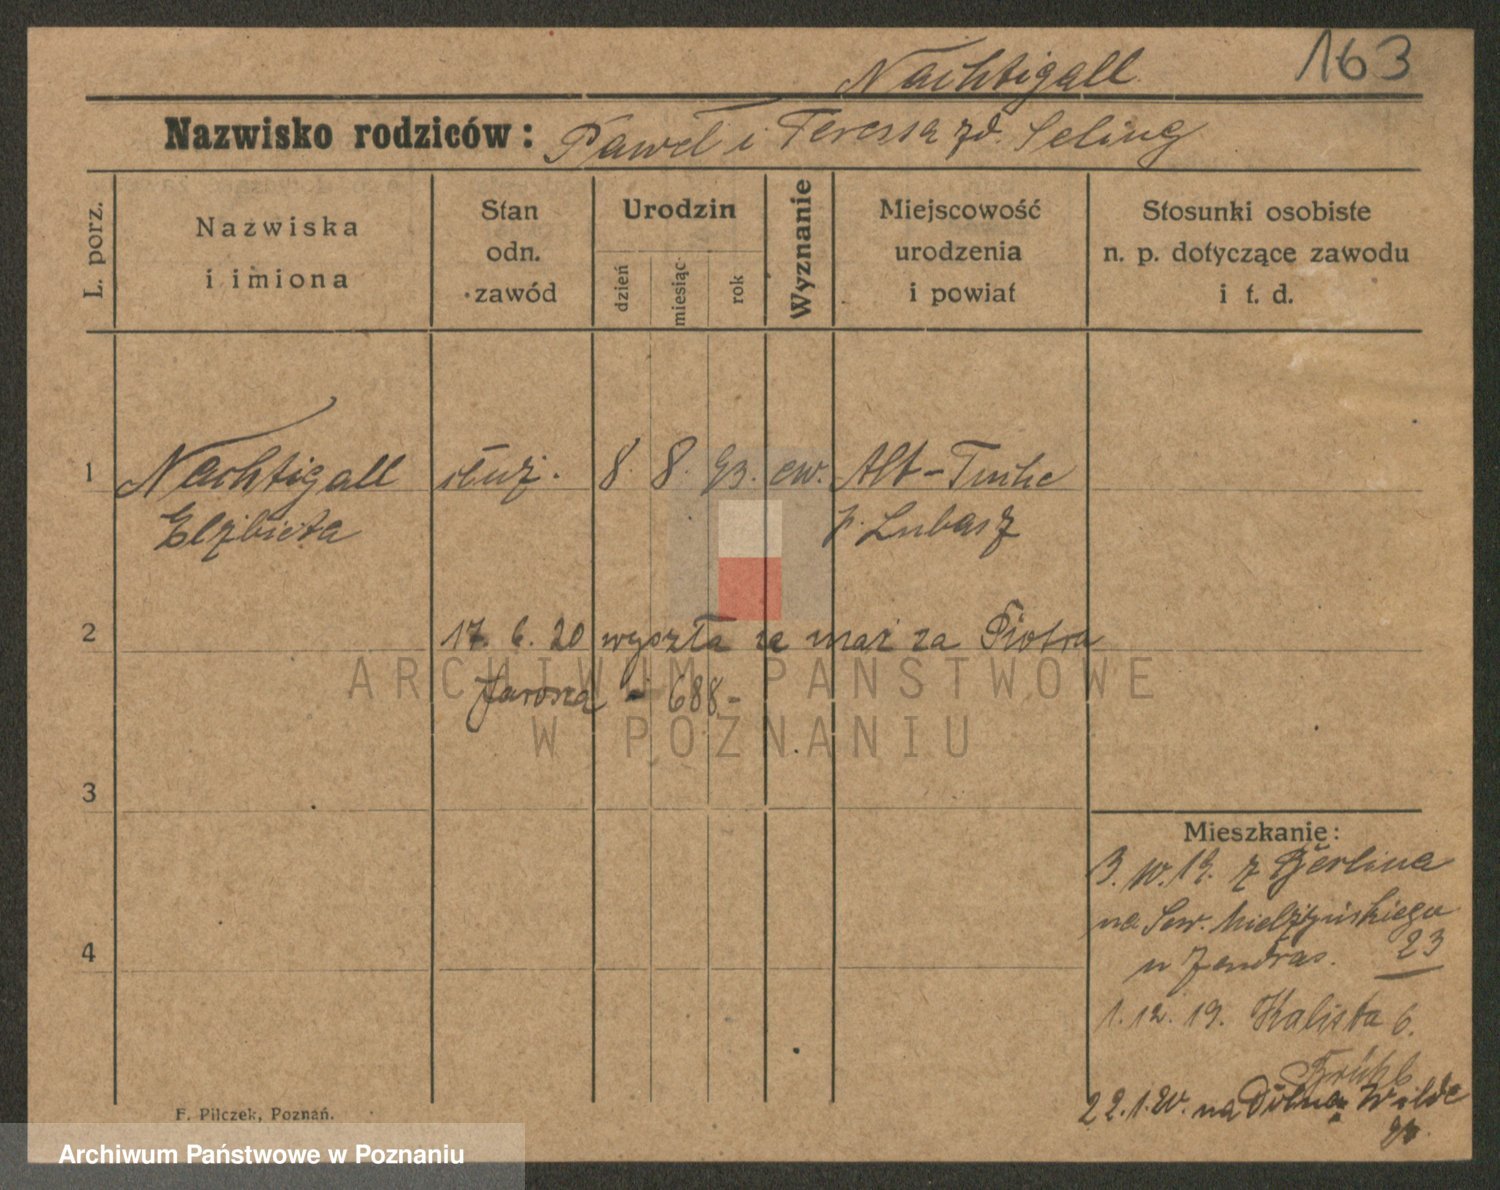 Nachtigall
163
Nazwisko rodziców: Paweł i Teressa zd. Seling
L. porz.
Nazwiska
i imiona
Stan
odn.
zawód
Urodzin
dzień
miesiąc
rok
Wyznanie
Miejscowość
urodzenia
i powiat
Stosunki osobiste
n. p. dotyczące zawodu
i t. d.
1 Nachtigall służ. 8. 8. 93. ew. Alt-
Elżbieta p. Lubasz
2 17. 6. 20 wyszła za mąż za Piotra
Jarosza - 688-
3
4
Mieszkanie:
3. 10. 19. z Berlina
na Sew. Mielżyńskiego
u 23
1. 12. 19. Kalista 6.
22. 1. 20. na Dolna Wilde
F. Pilczek, Poznań.
ARCHIWUM PAŃSTWOWE
W POZNANIU
Archiwum Państwowe w Poznaniu